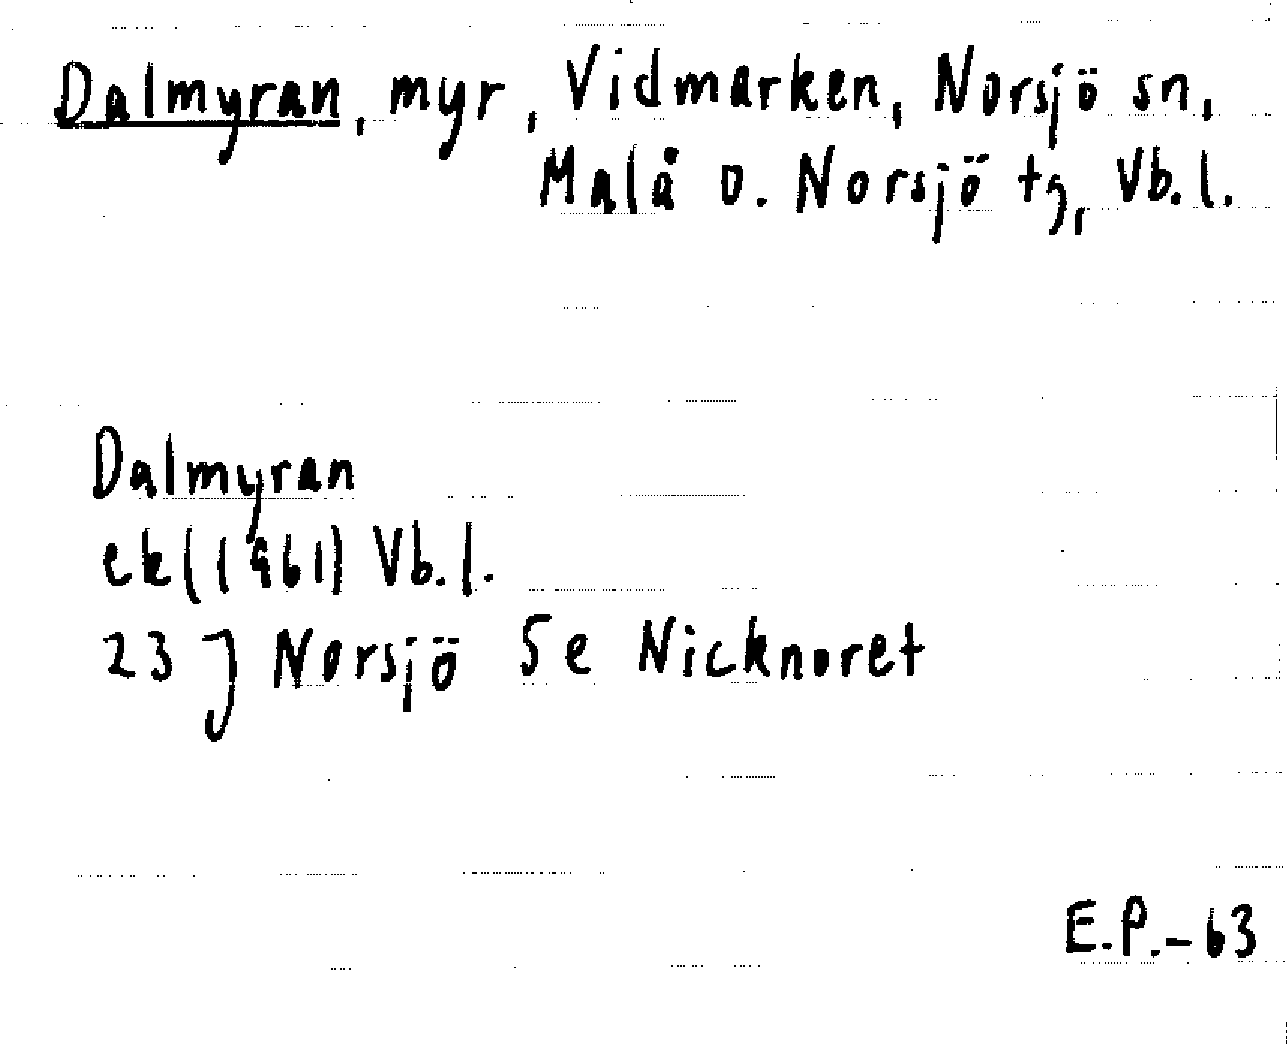 Dalmyran, myr, Vidmarken, Norsjö sn,
Malå o. Norsjö tg, Vb.l.
Dalmyran
ek (1961) Vb.l.
23 J Norsjö Se Nicknoret
E.P.-63